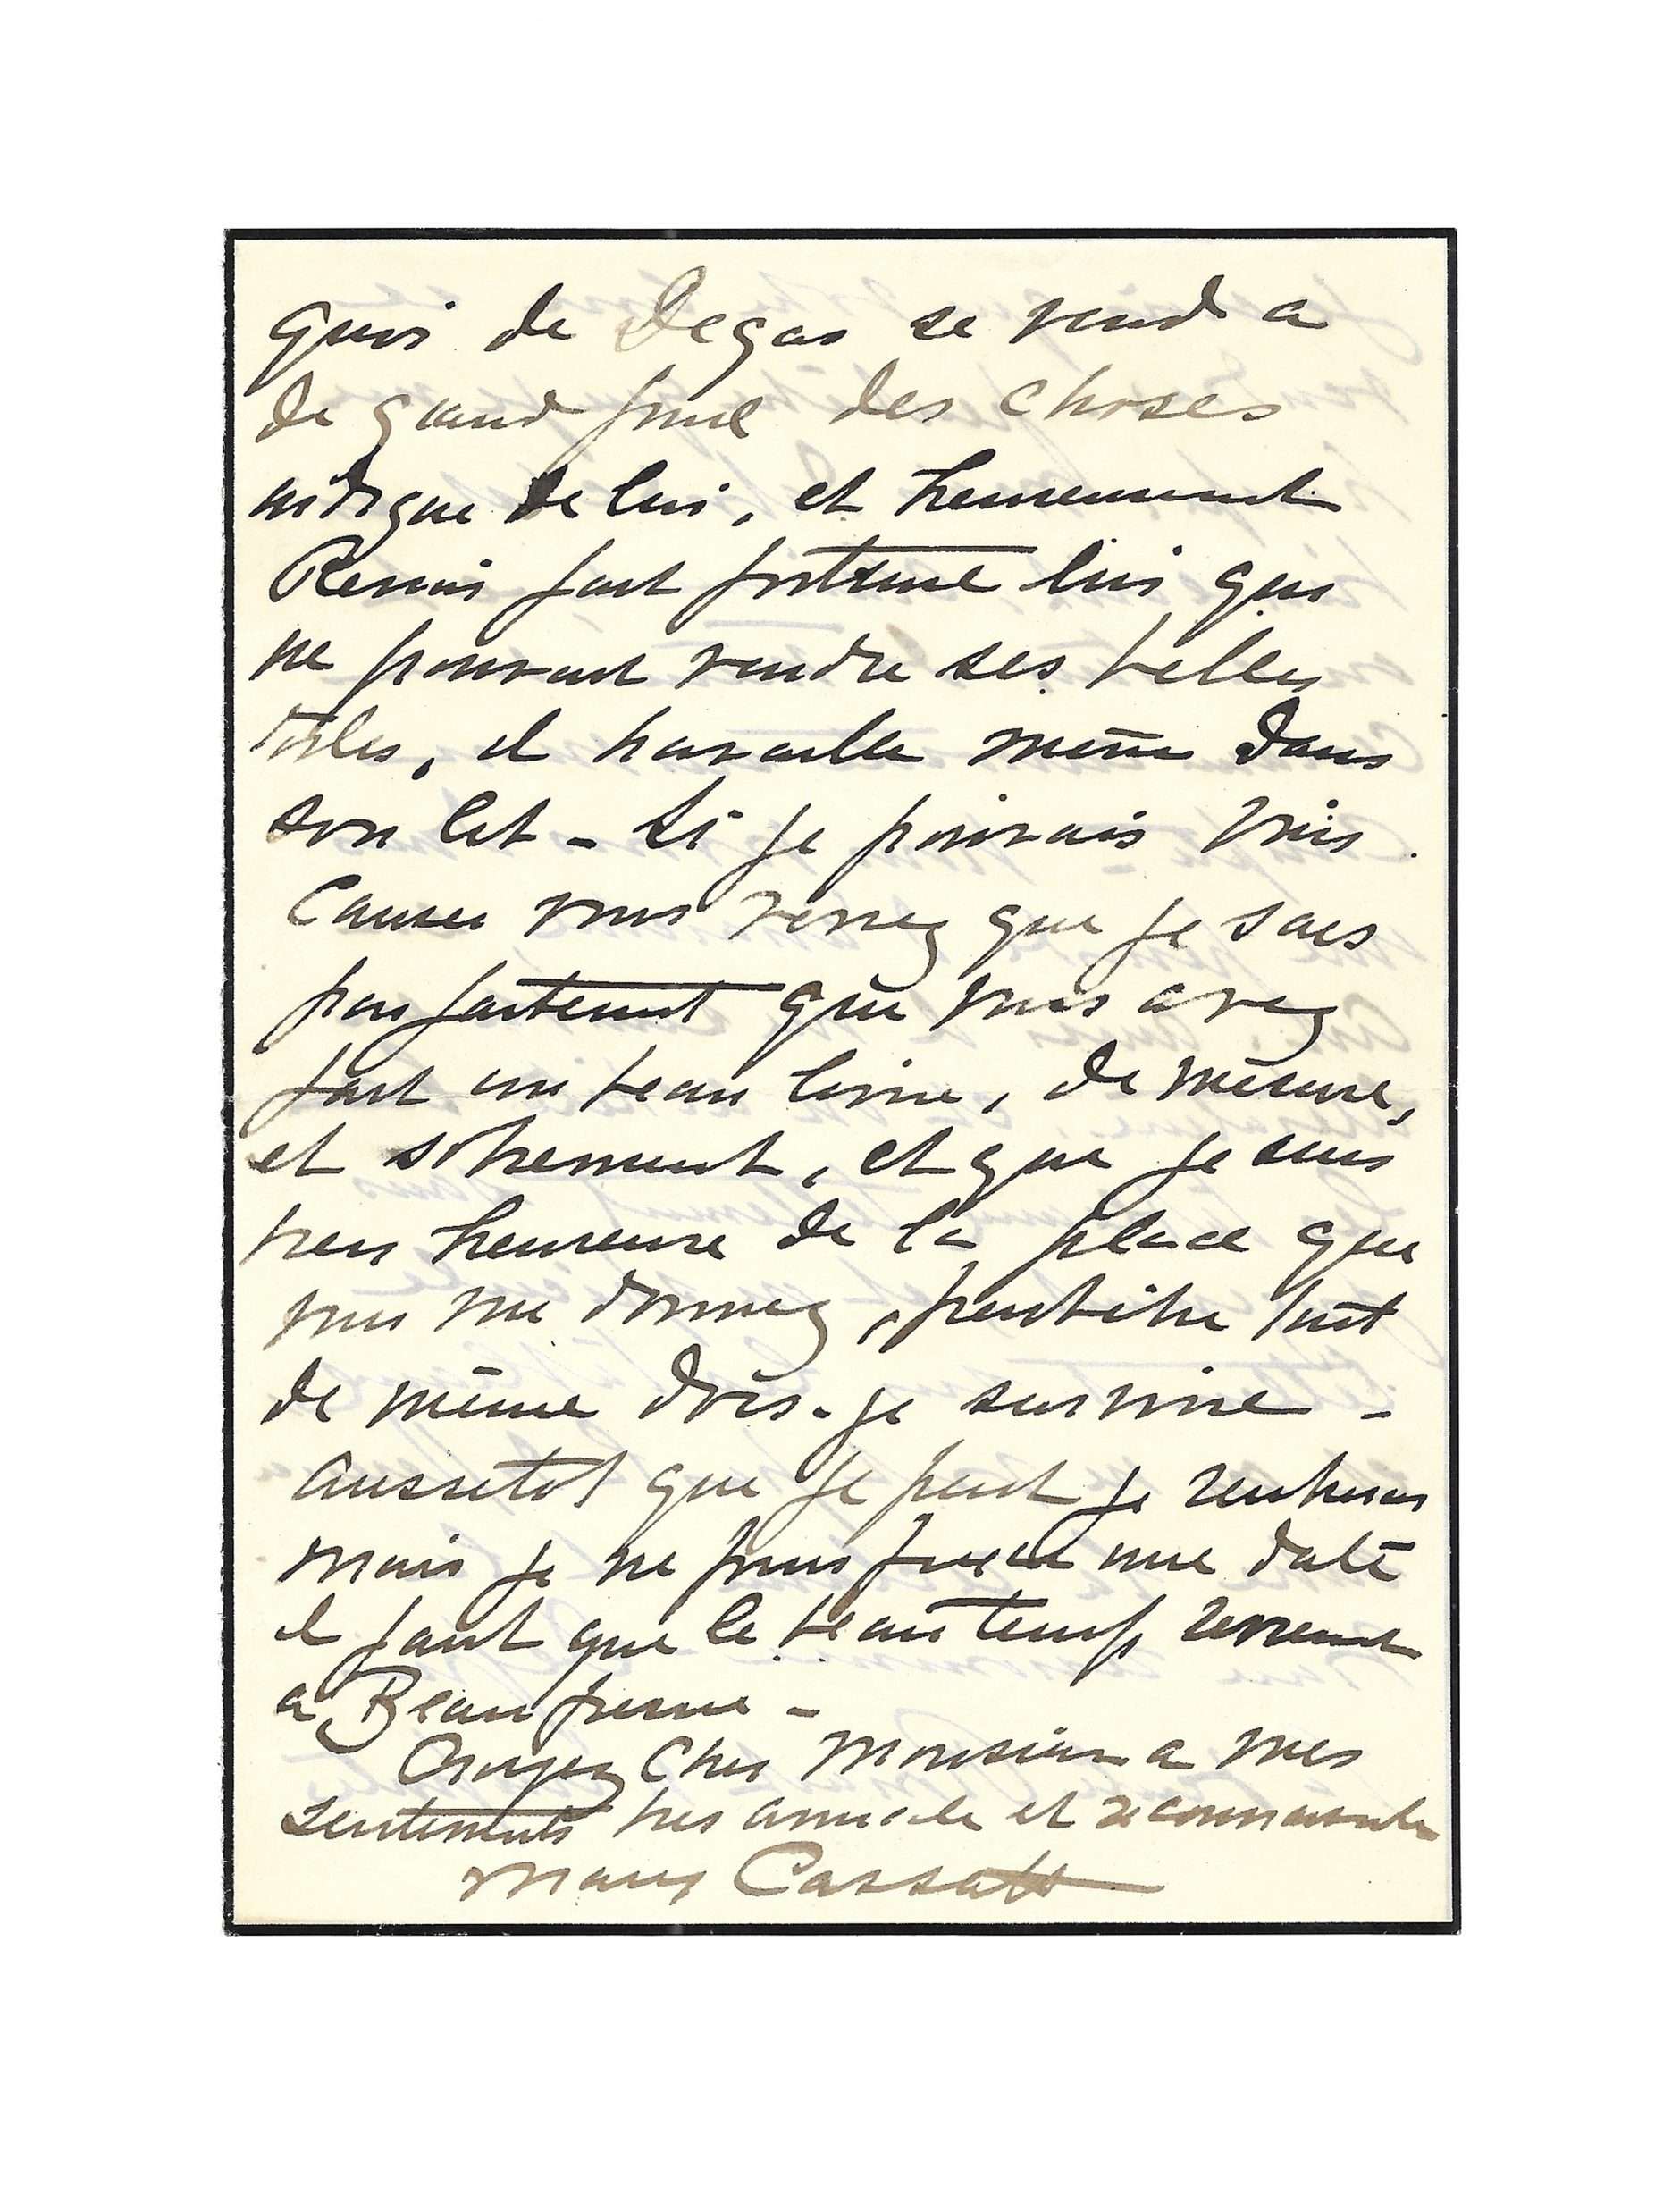 quoi de Degas se vend a
de grand prix des choses
indigne de lui, et heureusement
Renoir fait fortune lui qui
ne pouvait vendre ses belles
toiles, il travaille même dans
son lit - Si je pouvais vous
Causer vous verrez que je sais
parfaitement que vous avez
fait un beau livre, de mésure,
et sobrement, et que je suis
tres heureuse de la place que
vous me donnez, peutêtre tout
de même dois-je survivre -
aussitot que je peut je rentrerai
mais je ne puis fixer une date
il faut que le beau temps revienne
a Beaufresne -
Croyez Cher Monsieur a mes
sentiments tres amicale et reconnaissante
Mary Cassatt